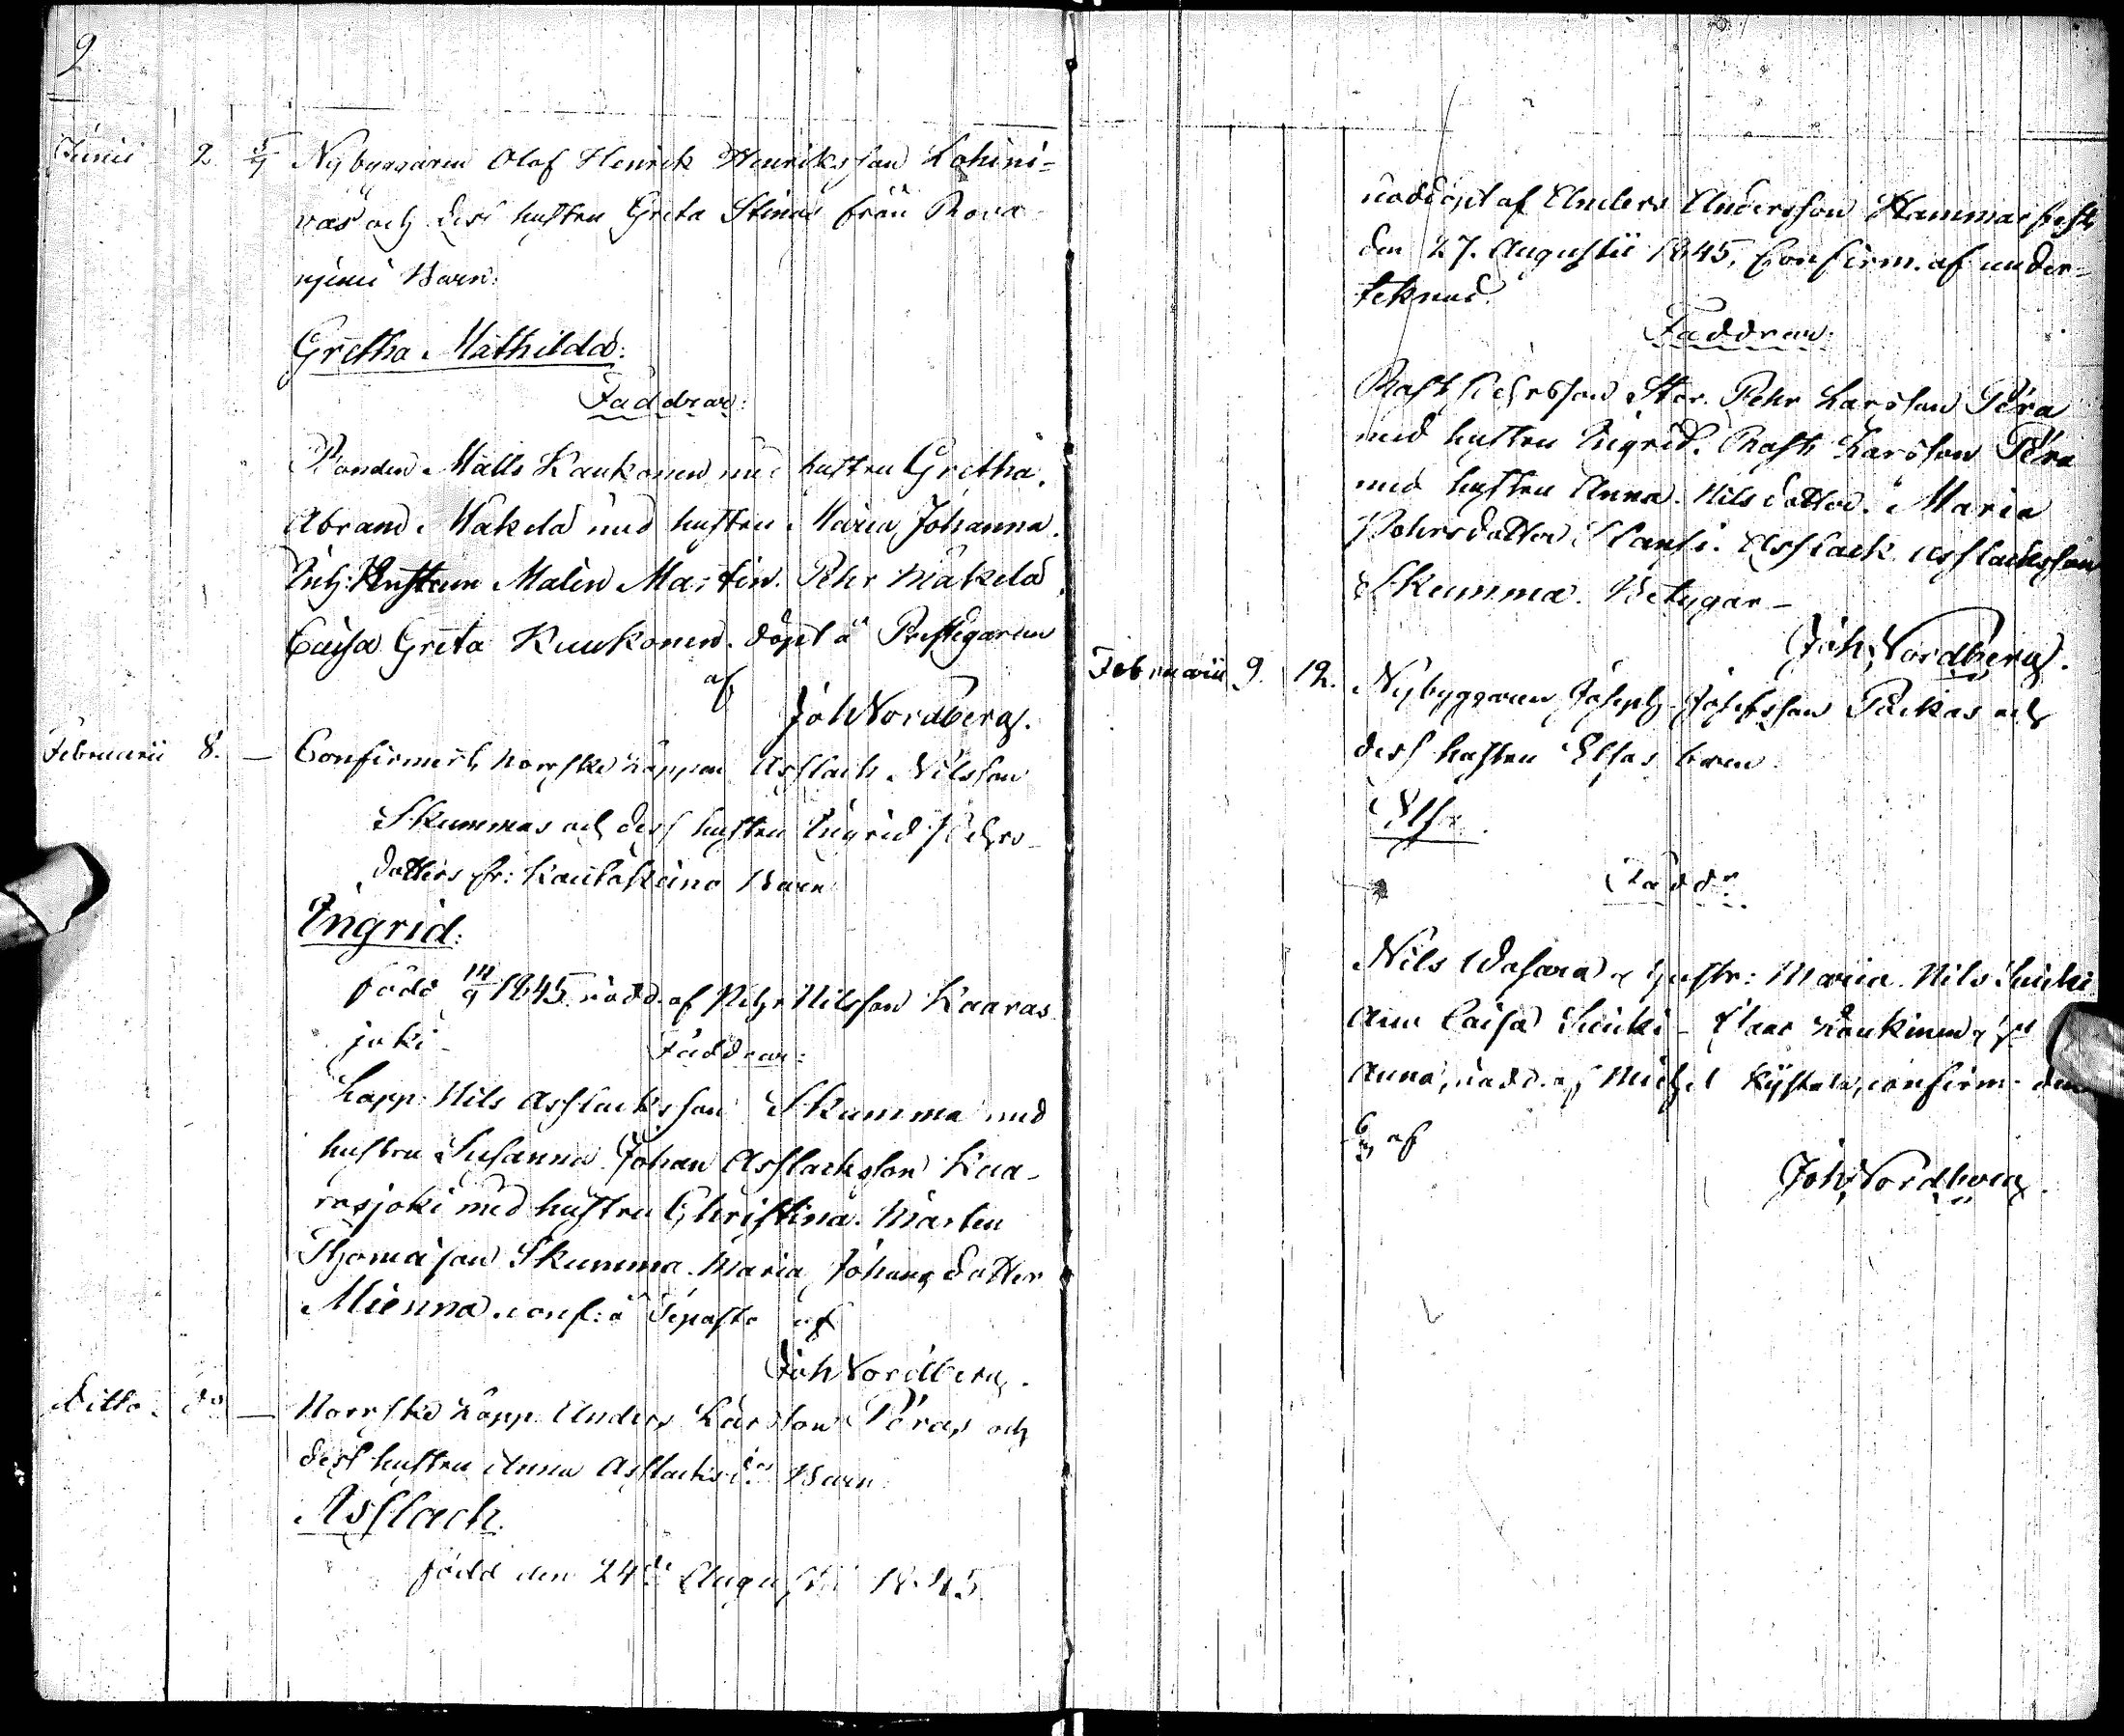 2
Junii 2. 5/7 Nybyggaren Olof Henrik Henriksson Lohini=
vas och dess hustru Greta Stinas från Rova
njemi Barn:
Gretha Mathilda:
Faddrar:
Bonden Matts Kaukonen med hustru Gretha.
Abram Mäkelä med hustru Maria Johanna.
Malin Martin. Pehr Mäkelä
Caisa Greta Kuukonen. döpt å Prestgården
af
Joh Nordberg.
Februarii 8. — Confirmerts Norrske Lappen Asslach Nilsson
Skummas och dess hustru Ingrid Pehrs-
dotters fr: Kautokeino Barn
Ingrid:
född 14/9 1845. nödd. af Pehr Nilsson Kaaras
joki - Faddrar:
Lapp. Nils Asslacksson Skumma med
hustru Susanna. Johan Asslacksson Kaa-
rasjoki med hustru Christina. Mårten
Thomasson Skumma. Maria Johans dotter
Mienna. conf: å Sepasto af
Joh Nordberg.
Ditto. do — Norrske Lapp. Anders Larsson Péras och
dess hustru Anna Asslacksdrs Barn
Asslach.
född den 24de Augusti 1845
nöddöpt af Anders Andersson Hammarfest
den 27. Augustii 1845, Confirm. af under=
teknad.
Faddrar:
Pehrsson Stor. Pehr Larsson Péra
med hustru Ingrid. Larsson Péra
med hustru Anna Nilsdotter. Maria
Pehrsdotter Asslack Asslacksson
Skumma. Betygar —
Joh Nordberg.
Februarii 9. 12. Nybyggaren Joseph Josefsson Päikas och
dess hustru Elsas barn
Faddr
Nils Wasara & hustr: Maria. Nils
Ann Caisa
Anna, nödd. af Michel confirm. den
af
Joh Nordberg.